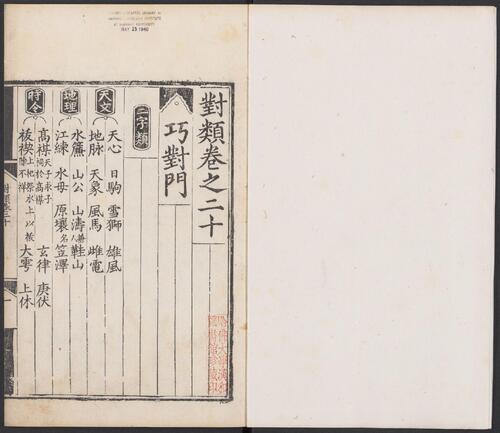 MAY 23 1940
對類卷之二十
巧對門
二字類
天文
天心 日駒 雪獅 雄風
地脉 天象 風馬 雌電
地理
水簾 山公 山濤 鞋山
江練 水母 原壤名 笠澤
時令
高禖天子求子祠於高禖 玄律 庚伏
祓禊上祀祭水上以祓除不祥 大雩 上休